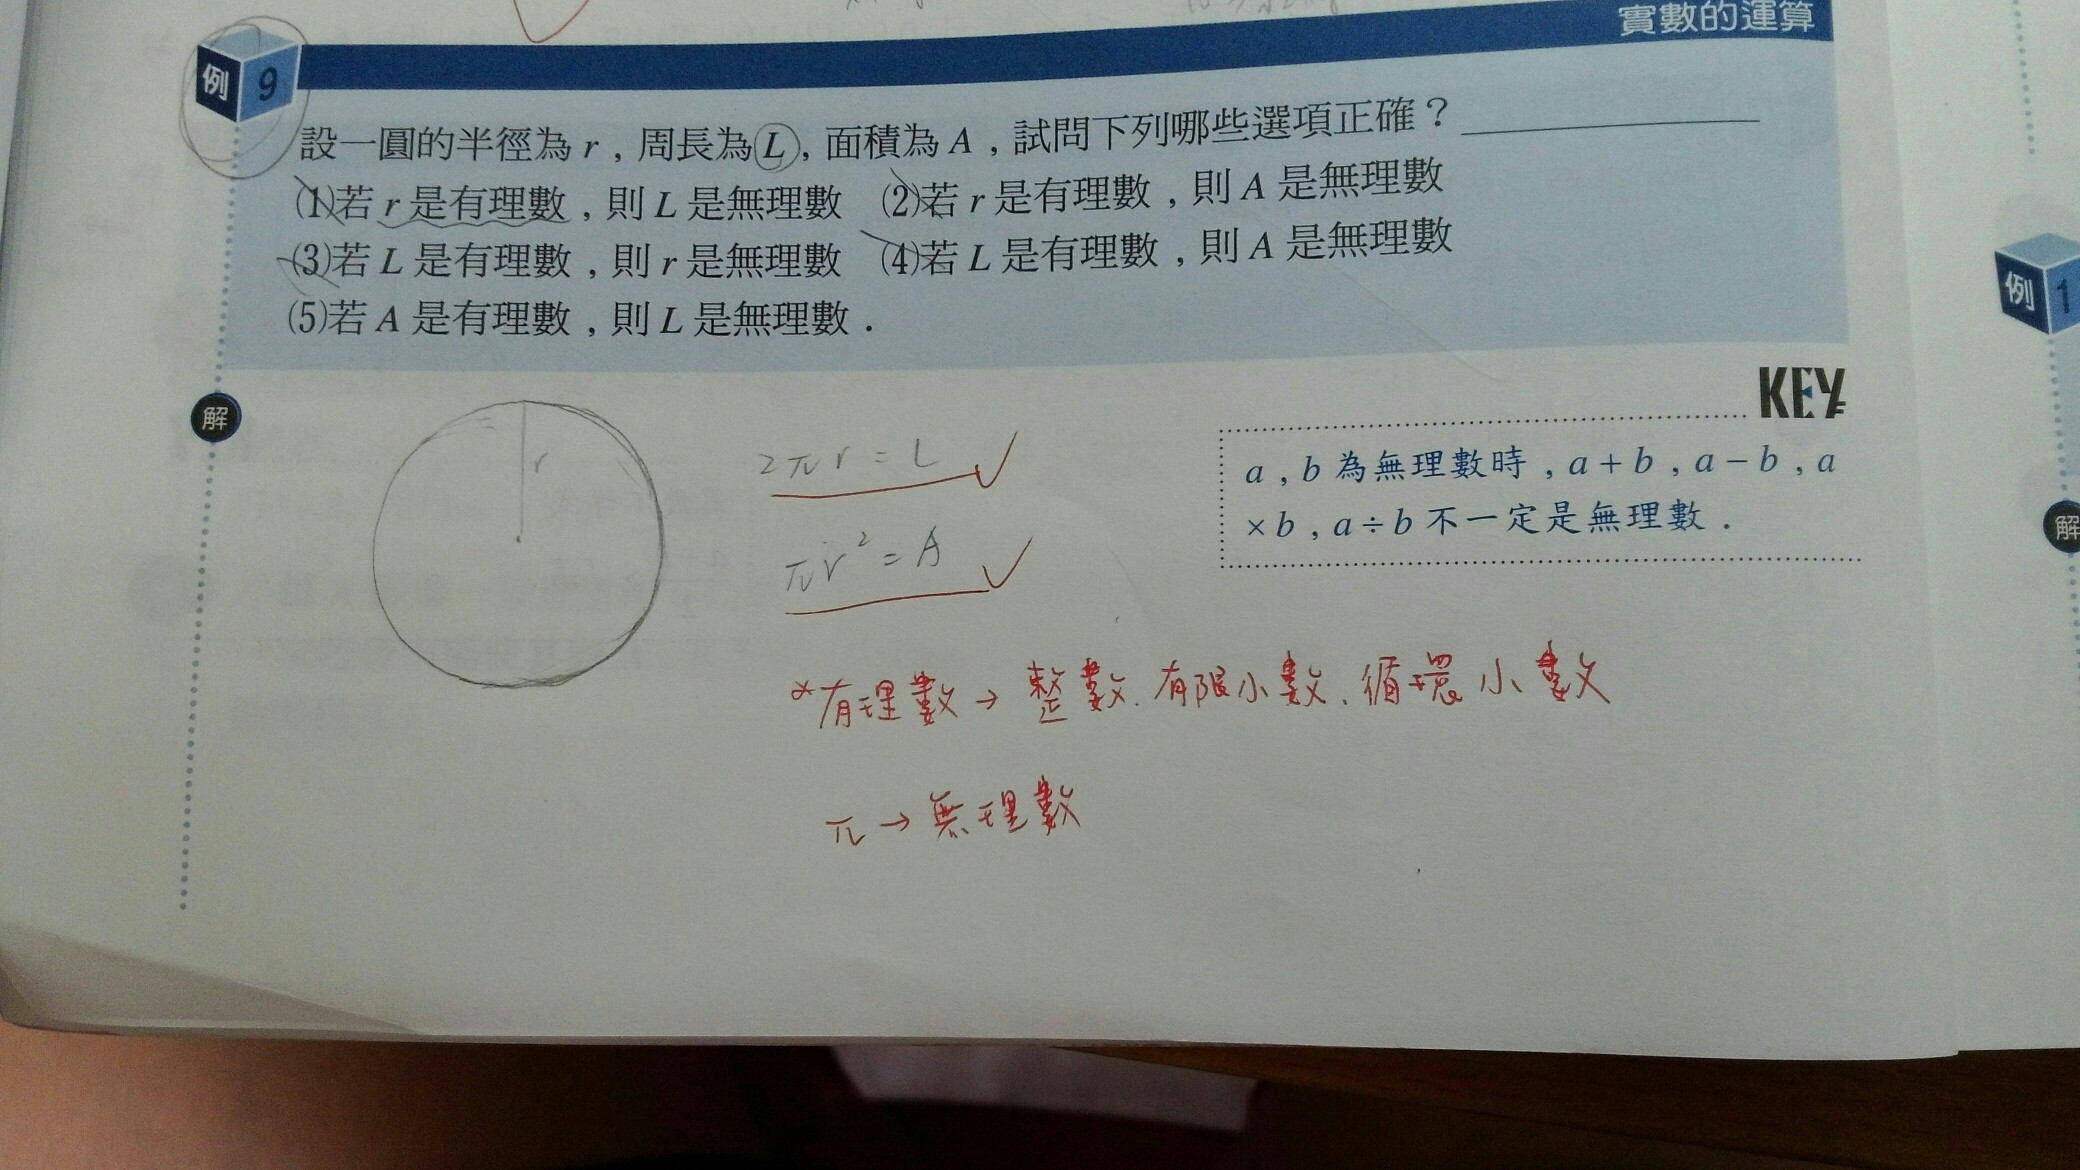 實數的運算
例 9
設一圓的半徑為 r，周長為 L，面積為 A，試問下列哪些選項正確？
(1)若 r 是有理數，則 L 是無理數 (2)若 r 是有理數，則 A 是無理數
(3)若 L 是有理數，則 r 是無理數 (4)若 L 是有理數，則 A 是無理數
(5)若 A 是有理數，則 L 是無理數．
例 1
解
r
2πr = L
πr² = A
KEY
a，b 為無理數時，a＋b，a－b，a
×b，a÷b 不一定是無理數．
解
*有理數→整數、有限小數、循環小數
π→無理數